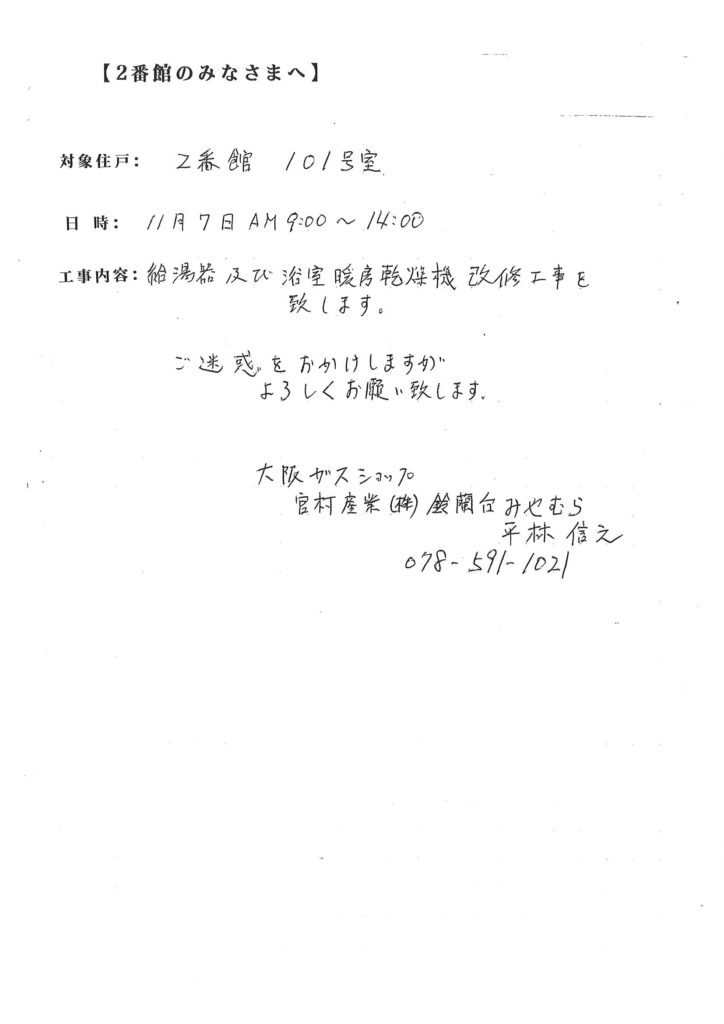 【2番館のみなさまへ】
対象住戸： 2番館 101号室
日 時： 11月7日 AM 9:00～14:00
工事内容： 給湯器及び浴室暖房乾燥機 改修工事を
致します。
ご迷惑をおかけしますが
よろしくお願い致します。
大阪ガスショップ
宮村産業(株) 鈴蘭台みやむら
平林 信之
078-591-1021